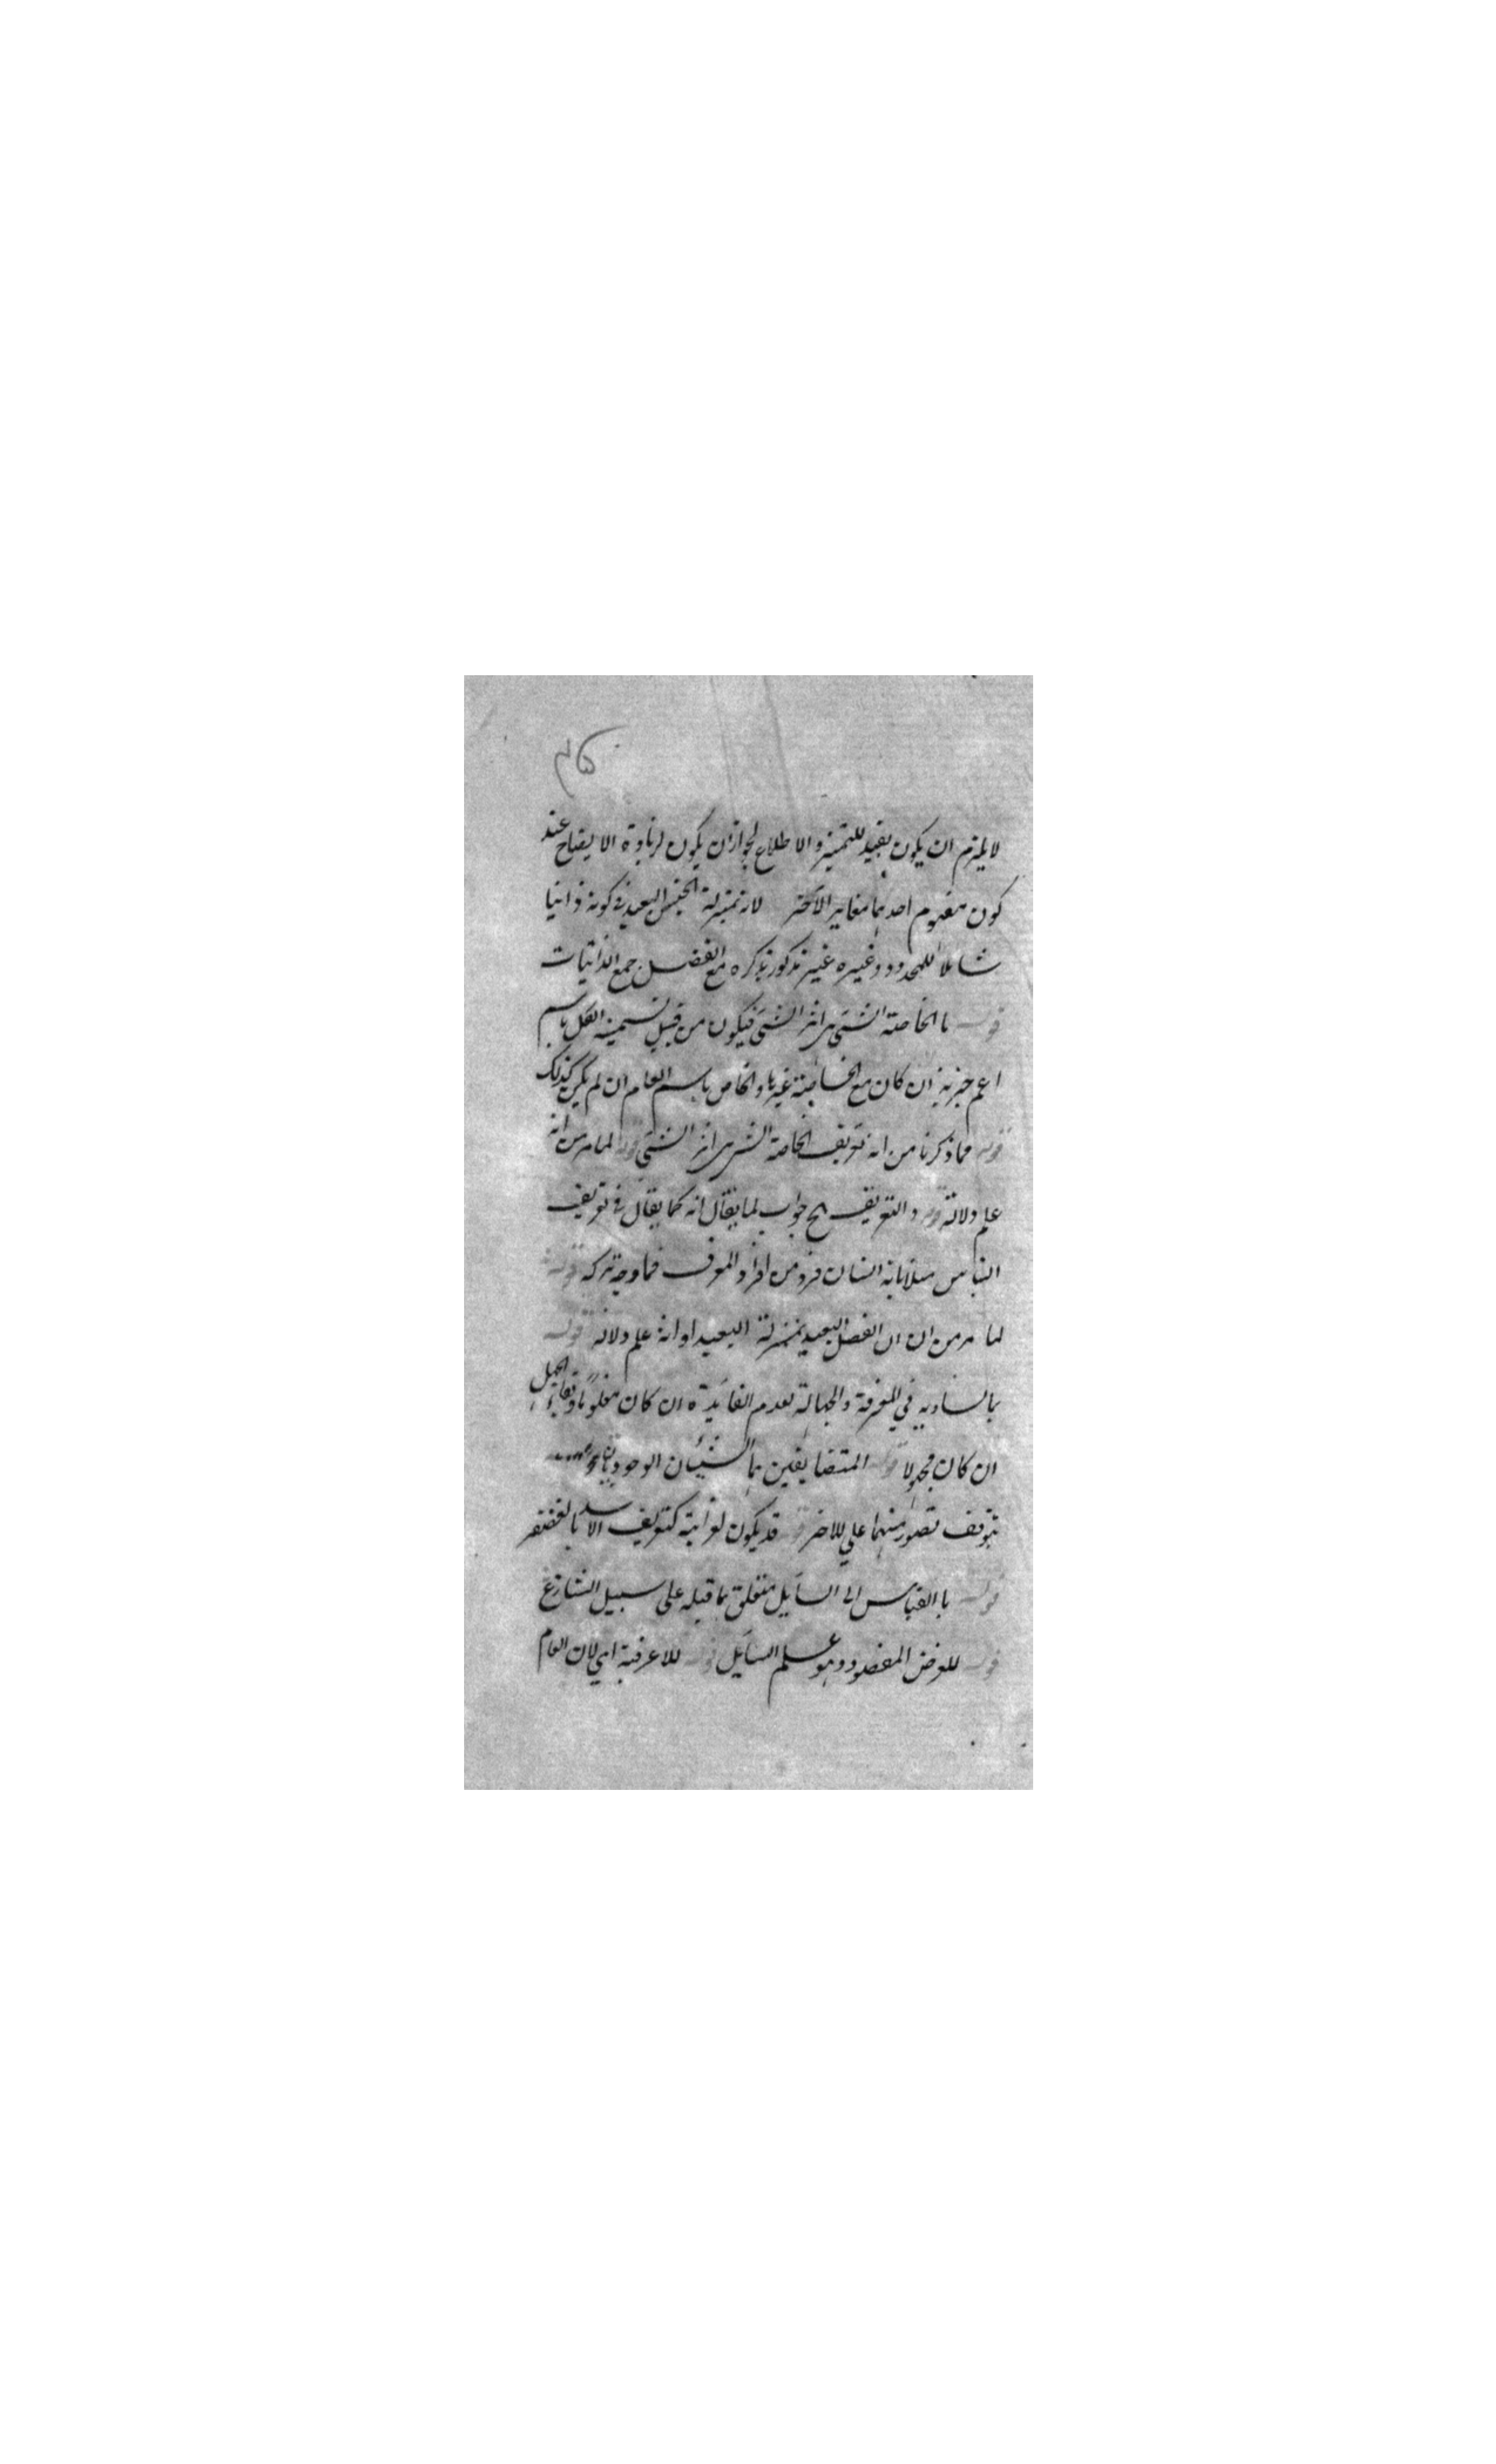 ۴۵
لا يلزم ان يكون بقيد للتميز والاطلاع لجواز ان يكون لزيادة الايضاح عند
كون مفهوم احدهما مغاير الآخر لانه بمنزلة الجنس البعيد في كونه ذاتيا
شاملا للمحدود وغيره غير مذكور بذكره مع الفصل جمع الذاتيات
قوله با الخاصة الشئ اثر الشئ فيكون من قبيل تسمية الكل باسم
اعم جزئيه ان كان مع الخاصة غيرها والخاص باسم العام ان لم يكن كذلك
قوله فما ذكرنا من انه تعريف الخاصة الشئ اثر الشئ قوله لما مر من انه
علم دلالة قوله والتعريف ح جواب لما يقال انه كما يقال في تعريف
الناس مثلا بانه انسان فرد من افراد المعرف فما وجه تركه قوله
لما مر من ان ان الفصل البعيد بمنزلة البعيد او انه علم دلالة قوله
بالمساويه في المعرفة والجهالة لعدم الفائدة ان كان معلوما الجهل
ان كان مجهولا قوله المتضايفين هما الشيئان الوجوديان
يتوقف تصور منهما علي للاخر قوله قد يكون لغرابته كتعريف الاسد بالغضنفر
قوله با القياس الى السايل متعلق بما قبله على سبيل التنازع
قوله للغرض المقصود وهو علم السايل قوله للاعرفية اي لان العام